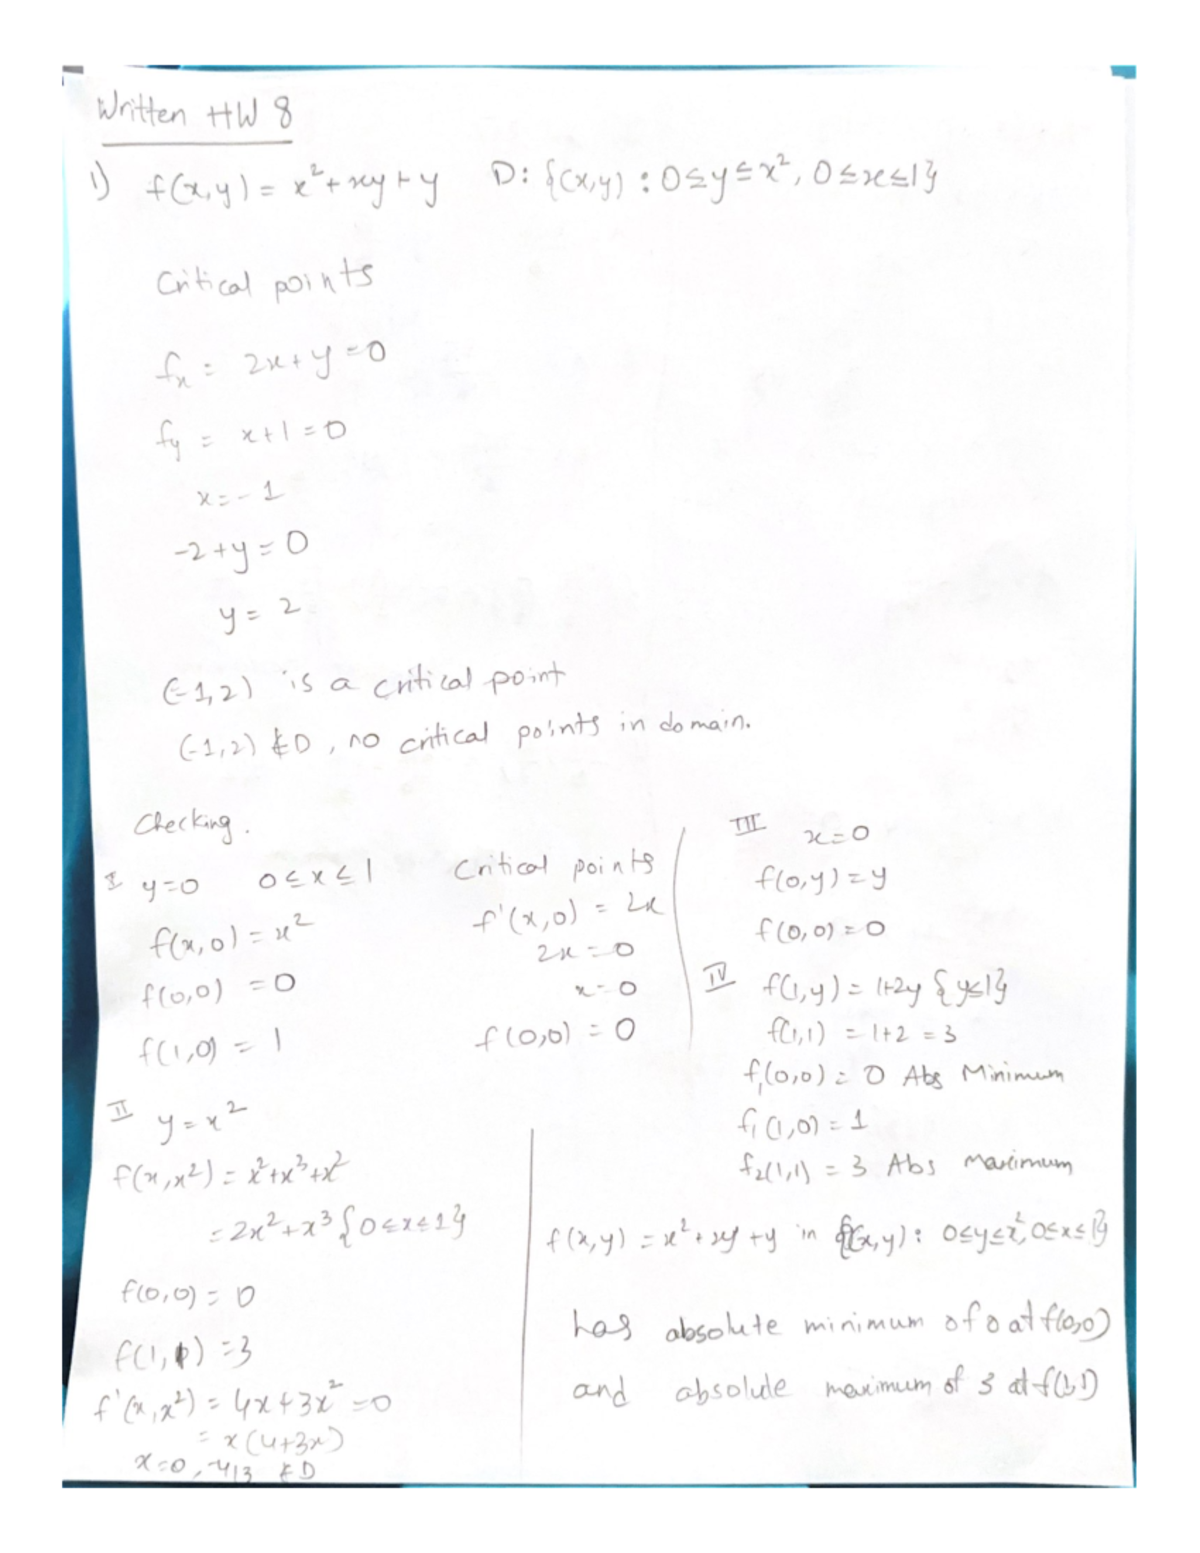 Written HW 8
1) f(x,y) = x²+xy+y D: {(x,y) : 0≤y≤x², 0≤x≤1}
Critical points
fx = 2x+y=0
fy = x+1=0
x=-1
-2+y=0
y=2
(-1,2) is a critical point
(-1,2) ∉D, no critical points in domain.
Checking.
I y=0 0≤x≤1
f(x,0)=x²
f(0,0) =0
f(1,0) = 1
Critical points
f'(x,0) = 2x
2x=0
x=0
f(0,0) = 0
II y=x²
f(x,x²) = x²+x³+x²
= 2x²+x³ {0≤x≤1}
f(0,0) = 0
f(1,1) =3
f'(x,x²) = 4x+3x² =0
= x(4+3x)
x=0, -4/3 ∉D
III x=0
f(0,y)=y
f(0,0)=0
IV f(1,y) = 1+2y {y≤1}
f(1,1) = 1+2 = 3
f₁(0,0) = 0 Abs Minimum
f₁(1,0) = 1
f₂(1,1) = 3 Abs Maximum
f(x,y) = x²+xy+y in {(x,y): 0≤y≤x², 0≤x≤1}
has absolute minimum of 0 at f(0,0)
and absolute maximum of 3 at f(1,1)